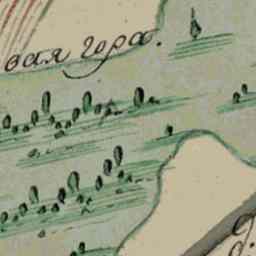 вая гора.